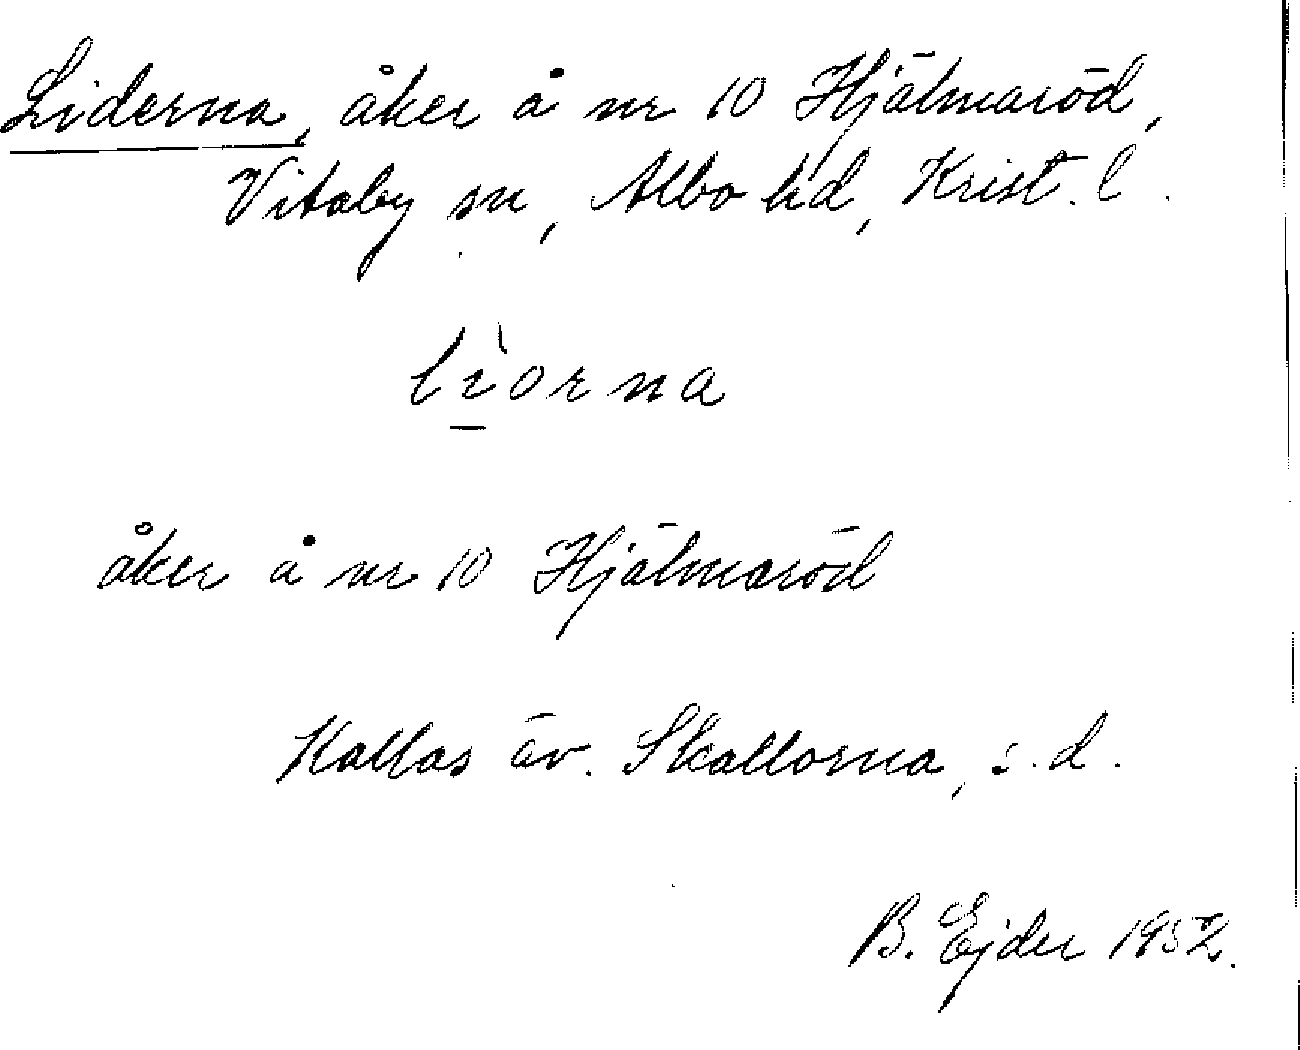 Liderna, åker å nr 10 Hjälmaröd,
Vitaby sn, Albo hd, Krist. l.
lìorna
åker å nr 10 Hjälmaröd
Kallas äv. Skallorna, s.d.
B. Ejder 1952.